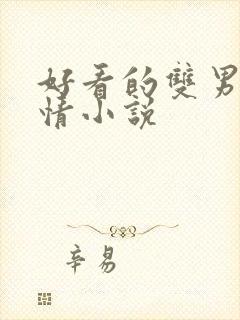 好看的雙男
情小説
辛易